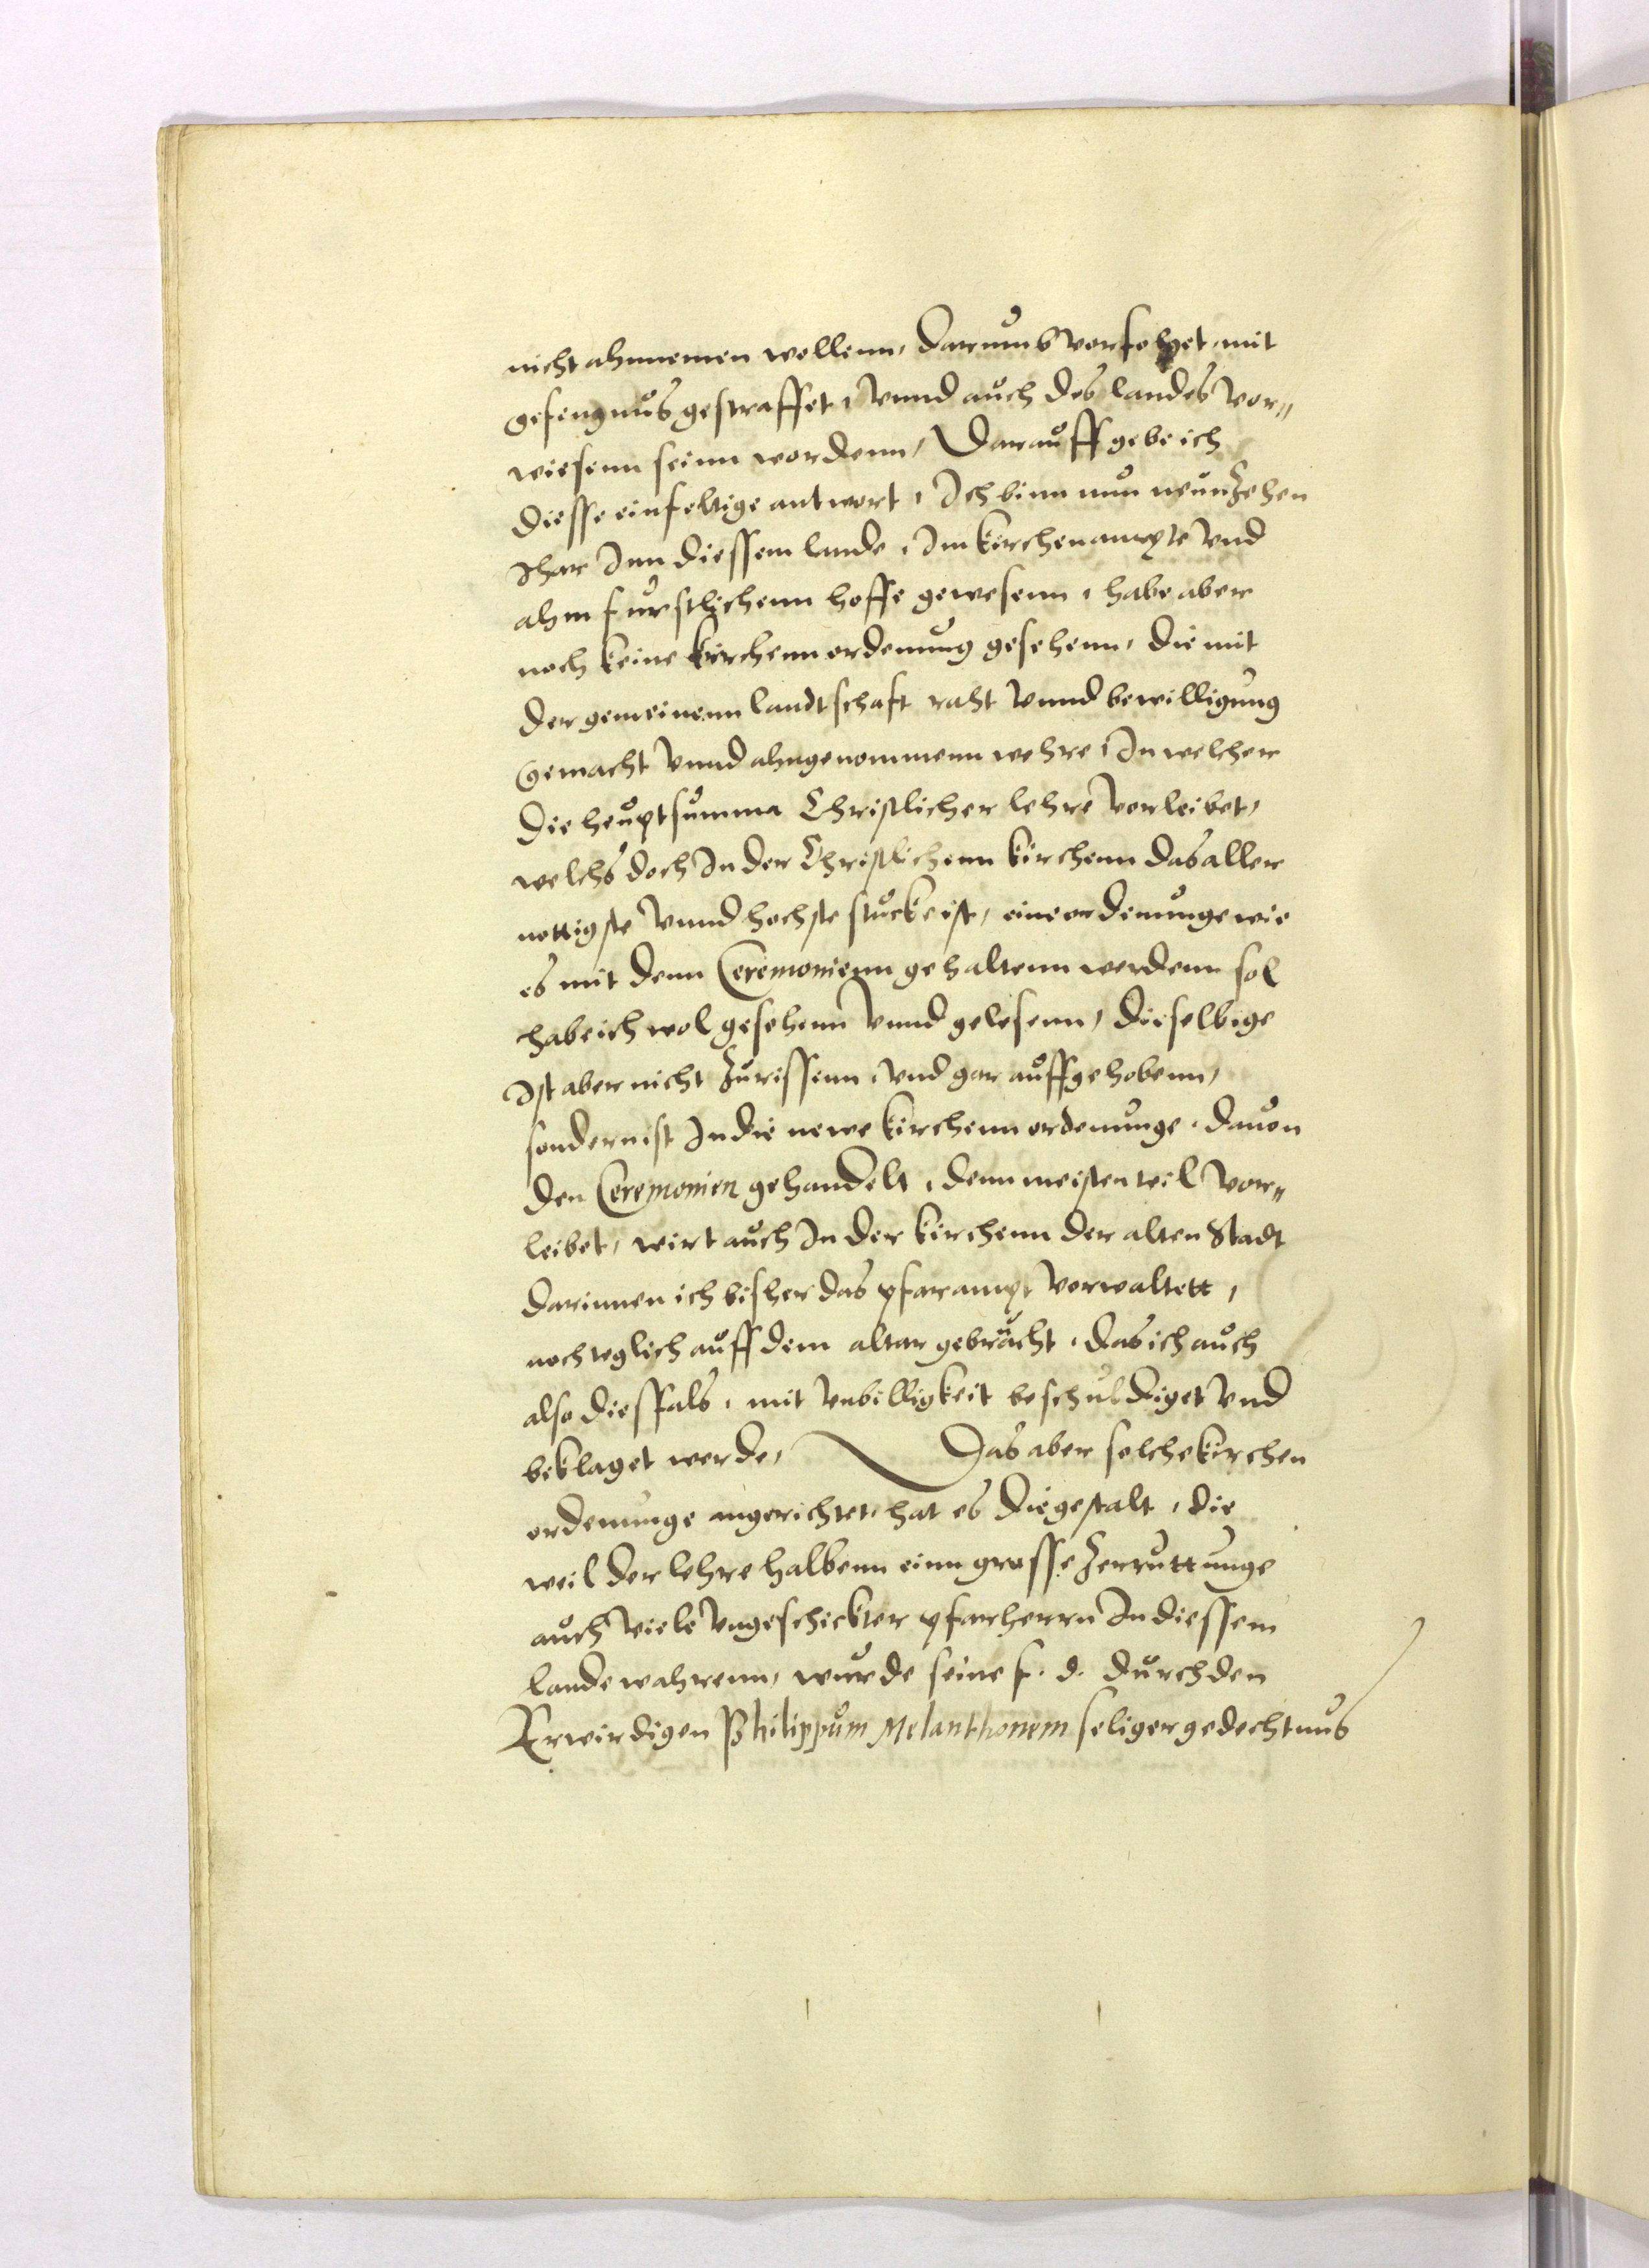 nicht ahnnemen wollenn, darumb vorfolget, mit
gefengnus gestraffet, vnnd auch des landes vor=
wiesenn seinn wordenn, Darauff gebe ich
diesse einfeltige antwort, Ich binn nun neunzehen
Jhar Inn diessem lande, Im kirchenampte vnd
ahm furstlichenn hoffe gewesenn, habe aber
noch keine kirchenn ordenung gesehenn, die mit
der gemeinenn landtschaft raht vnnd bewilligung
gemacht vnnd ahngenommenn wehre, In welcher
die heuptsumma Christlicher lehre vorleibet,
welchs doch In der Christlichenn kirchenn das aller
nottigste vnnd hochste stucke ist, eine ordenunge wie
es mit denn Ceremonienn gehaltenn werdenn sol
habe ich wol gesehenn vnnd gelesenn, dieselbige
Ist aber nicht zurissenn, vnd gar auffgehobenn,
sondern ist In die newe kirchenn ordenunge, da von
den Ceremonien gehandelt, denn meisten teil vor=
leibet, wirt auch In der kirchenn der alten Stadt
darinnen ich bisher das pfarampt vorwaltett,
noch teglich auff dem altar gebraucht, das ich auch
also diesfals, mit vnbilligkeit beschuldiget vnd
beklaget werde, Das aber solche kirchen
ordenunge angerichtet, hat es die gestalt, die
weil der lehre halbenn einn grosse zerruttunge
auch viele vngeschickter pfarherrn In diessem
lande wahrenn, wurde seine f. d. durch den
Erwirdigen Philippum Melanthonem seliger gedechtnus